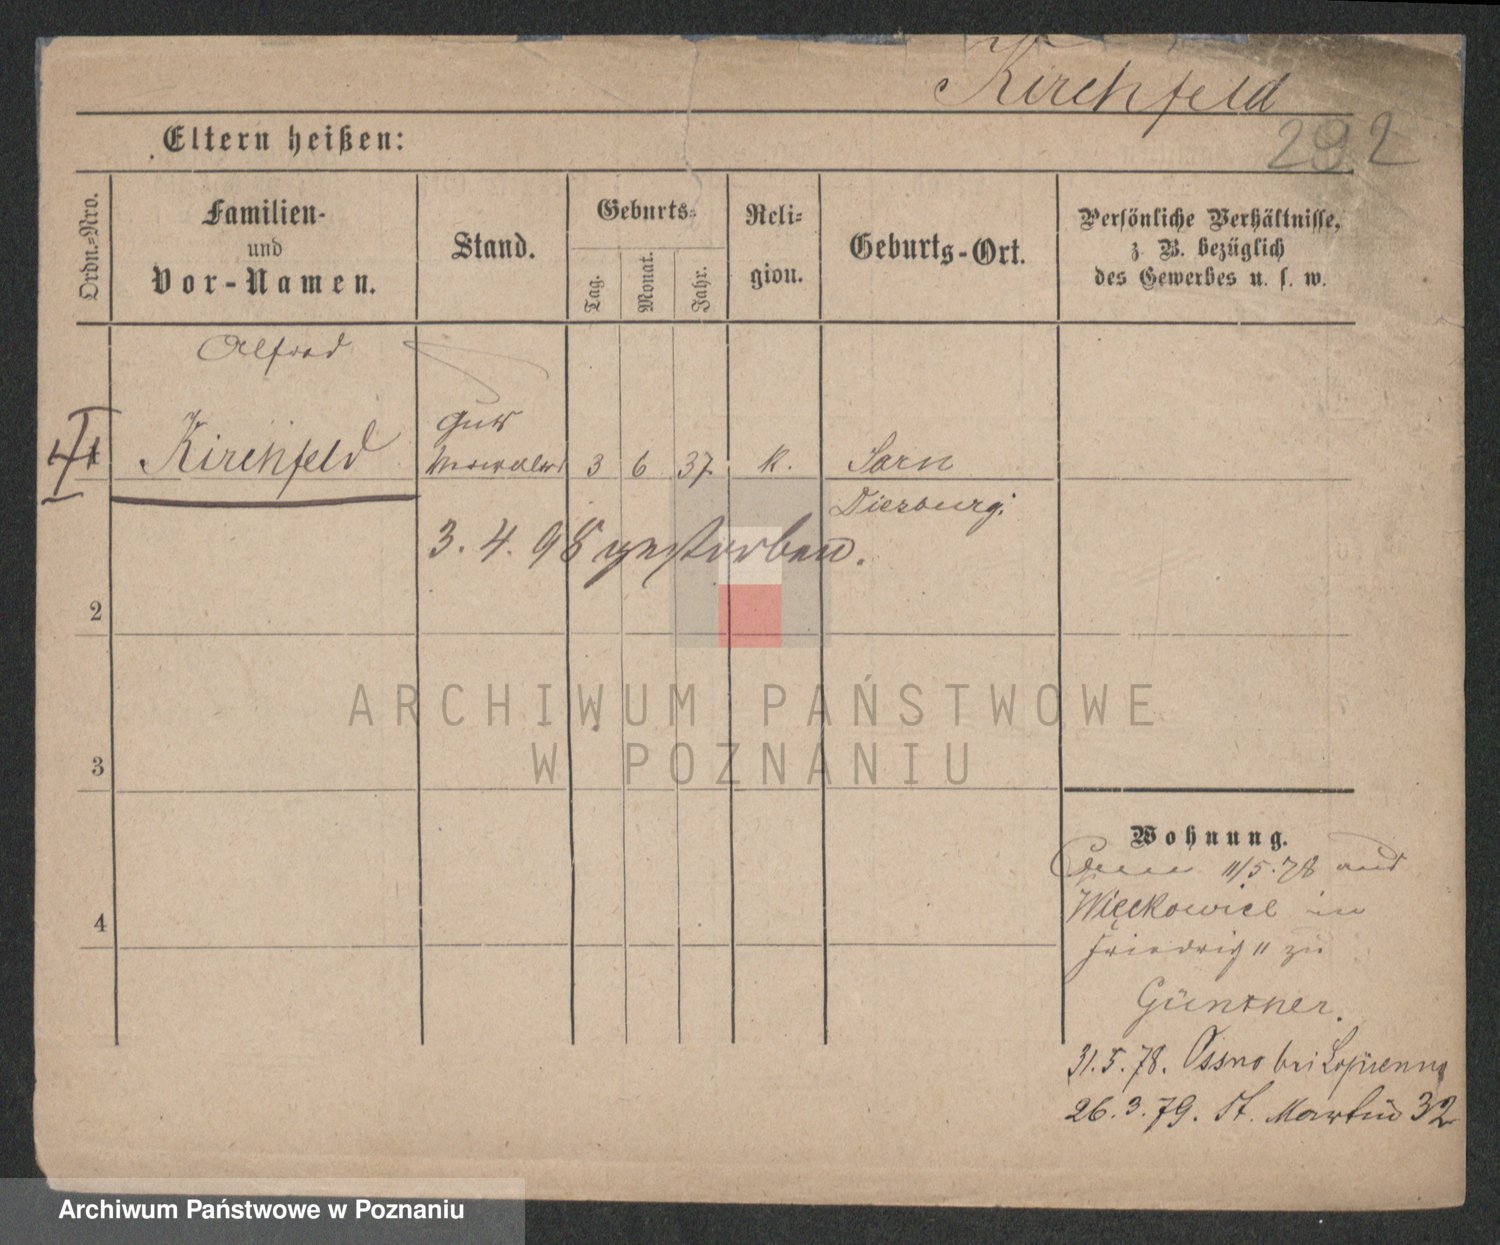 Kirchfeld
292
Eltern heißen:
Ordn.=Nro.
Familien-
und
Vor-Namen.
Stand.
Geburts-
Tag.
Monat.
Jahr.
Reli-
gion.
Geburts-Ort.
Persönliche Verhältnisse,
z. B. bezüglich
des Gewerbes u. s. w.
Alfred
Kirchfeld
Guts
3
6
37.
k.
Sarn
3. 4. 98 gestorben.
2
3
4
ARCHIWUM PAŃSTWOWE
W POZNANIU
Wohnung.
11/5.78 aus
Więckowice in
Friedrich 11 zu
Günther.
31.5.78. Ossno bei
26.3.79. St. Martin 32
Archiwum Państwowe w Poznaniu